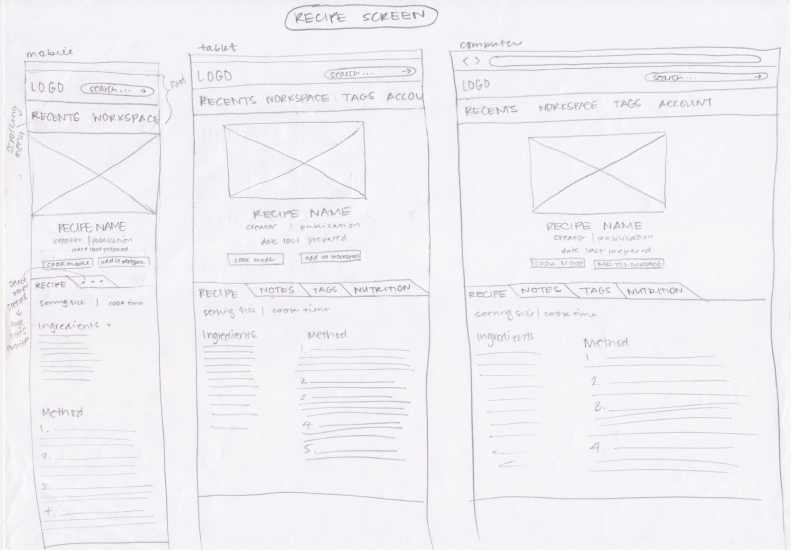 RECIPE SCREEN
mobile
LOGO
search... →
RECENTS WORKSPACE
scrolling menu
RECIPE NAME
creator | publication
date last prepared
COOK MODE
add to workspace
RECIPE
serving size | cook time
Ingredients
Method
1.
2.
3.
4.
tablet
LOGO
search... →
RECENTS WORKSPACE TAGS ACCOU
RECIPE NAME
creator | publication
date last prepared
COOK MODE
ADD TO WORKSPACE
RECIPE NOTES TAGS NUTRITION
serving size | cook time
Ingredients
Method
1.
2.
3.
4.
5.
computer
< >
LOGO
search... →
RECENTS WORKSPACE TAGS ACCOUNT
RECIPE NAME
creator | publication
date last prepared
COOK MODE
ADD TO WORKSPACE
RECIPE NOTES TAGS NUTRITION
serving size | cook time
Ingredients
Method
1.
2.
3.
4.